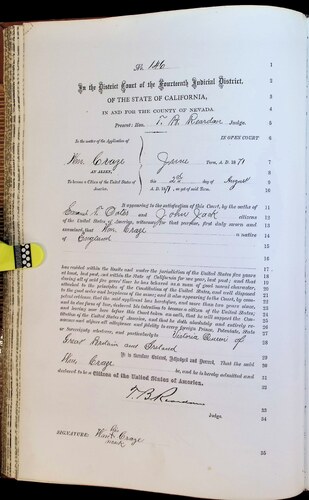 No. 146
In the District Court of the Fourteenth Judicial District,
OF THE STATE OF CALIFORNIA,
IN AND FOR THE COUNTY OF NEVADA.
Present: Hon. T. B. Reardan Judge.
IN OPEN COURT
In the matter of the Application of
Wm. Craze
AN ALIEN,
To become a Citizen of the United States of
America.
June Term, A. D. 1871
this 2nd day of August
A. D. 1871, as yet of said Term.
appearing to the satisfaction of this Court, by the oaths of
Oates and John Jack citizens
of the United States of America, witnesses for that purpose, first duly sworn and
examined, that Wm. Craze is a native
of England
has resided within the limits and under the jurisdiction of the United States five years
at least, last past, and within the State of California for one year, last past; and that
during all of said five years' time he has behaved as a man of good moral character,
attached to the principles of the Constitution of the United States, and well disposed
to the good order and happiness of the same; and it also appearing to the Court, by com-
petent evidence, that the said applicant has heretofore, and more than two years since,
and in due form of law, declared his intention to become a citizen of the United States;
and having now here before this Court taken an oath, that he will support the Con-
stitution of the United States of America, and that he doth absolutely and entirely re-
nounce and abjure all allegiance and fidelity to every foreign Prince, Potentate, State
or Sovereignty whatever, and particularly to Victoria Queen of
Great Britain and Ireland
It is therefore Ordered, Adjudged and Decreed, That the said
Wm. Craze be, and he is hereby admitted and
declared to be a Citizen of the United States of America.
T. B. Reardan
Judge.
SIGNATURE: his
Wm + Craze
mark
1
2
3
4
5
6
7
8
9
10
11
12
13
14
15
16
17
18
19
20
21
22
23
24
25
26
27
28
29
30
31
32
33
34
35